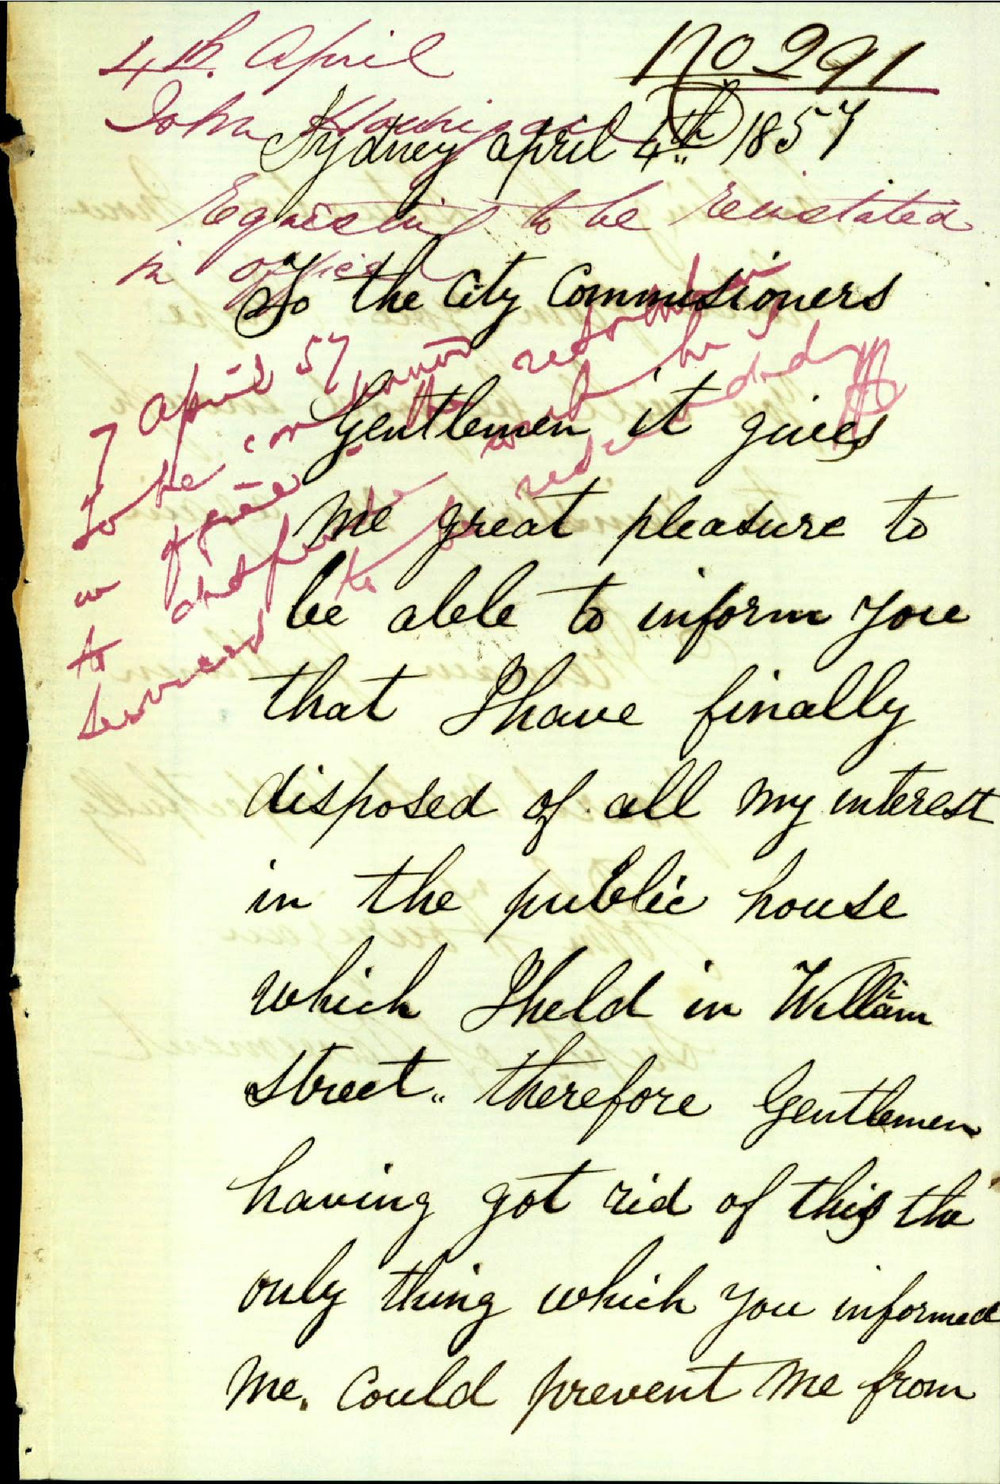 4th. April
No 291
John
Sydney april 4th 1857
Requesting to be reinstated
in office
To the City Commissioners
7 April 57
Gentlemen it gives
to be
me great pleasure to
be able to inform you
to
that I have finally
disposed of all my interest
in the public house
which I held in William
Street.. therefore Gentlemen
having got rid of this the
only thing which you informed
me. Could prevent me from